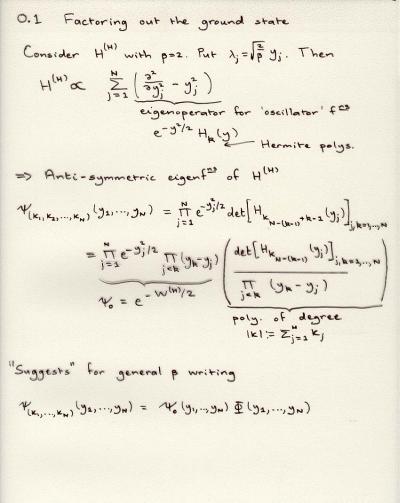 0.1 Factoring out the ground state
Consider H^{(H)} with β=2. Put λ_j = √(2/β) y_j. Then
H^{(H)} ∝ Σ_{j=1}^{N} ( ∂²/∂y_j² - y_j² )
eigenoperator for 'oscillator' f^{ns}
e^{-y²/2} H_k(y)
Hermite polys.
⇒ Anti-symmetric eigenf^{ns} of H^{(H)}
Ψ_{(k_1,k_2,...,k_N)}(y_1,...,y_N) = ∏_{j=1}^{N} e^{-y_j²/2} det[H_{k_{N-(k-1)}+k-1}(y_j)]_{j,k=1,...,N}
= ∏_{j=1}^{N} e^{-y_j²/2} ∏_{j<k} (y_k-y_j) ( det[H_{k_{N-(k-1)}}(y_j)]_{j,k=1,...,N} / ∏_{j<k} (y_k - y_j) )
Ψ_0 = e^{-W^{(H)}/2}
poly. of degree
|k| := Σ_{j=1}^{N} k_j
"Suggests" for general β writing
Ψ_{(k_1,...,k_N)}(y_1,...,y_N) = Ψ_0(y_1,...,y_N) Φ(y_1,...,y_N)